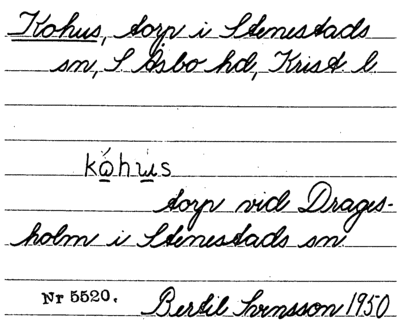 Kohus, torp i Stenestads
sn, S Åsbo hd, Krist l
kóhus
torp vid Drages-
holm i Stenestads sn
Nr 5520. Bertil Svensson 1950